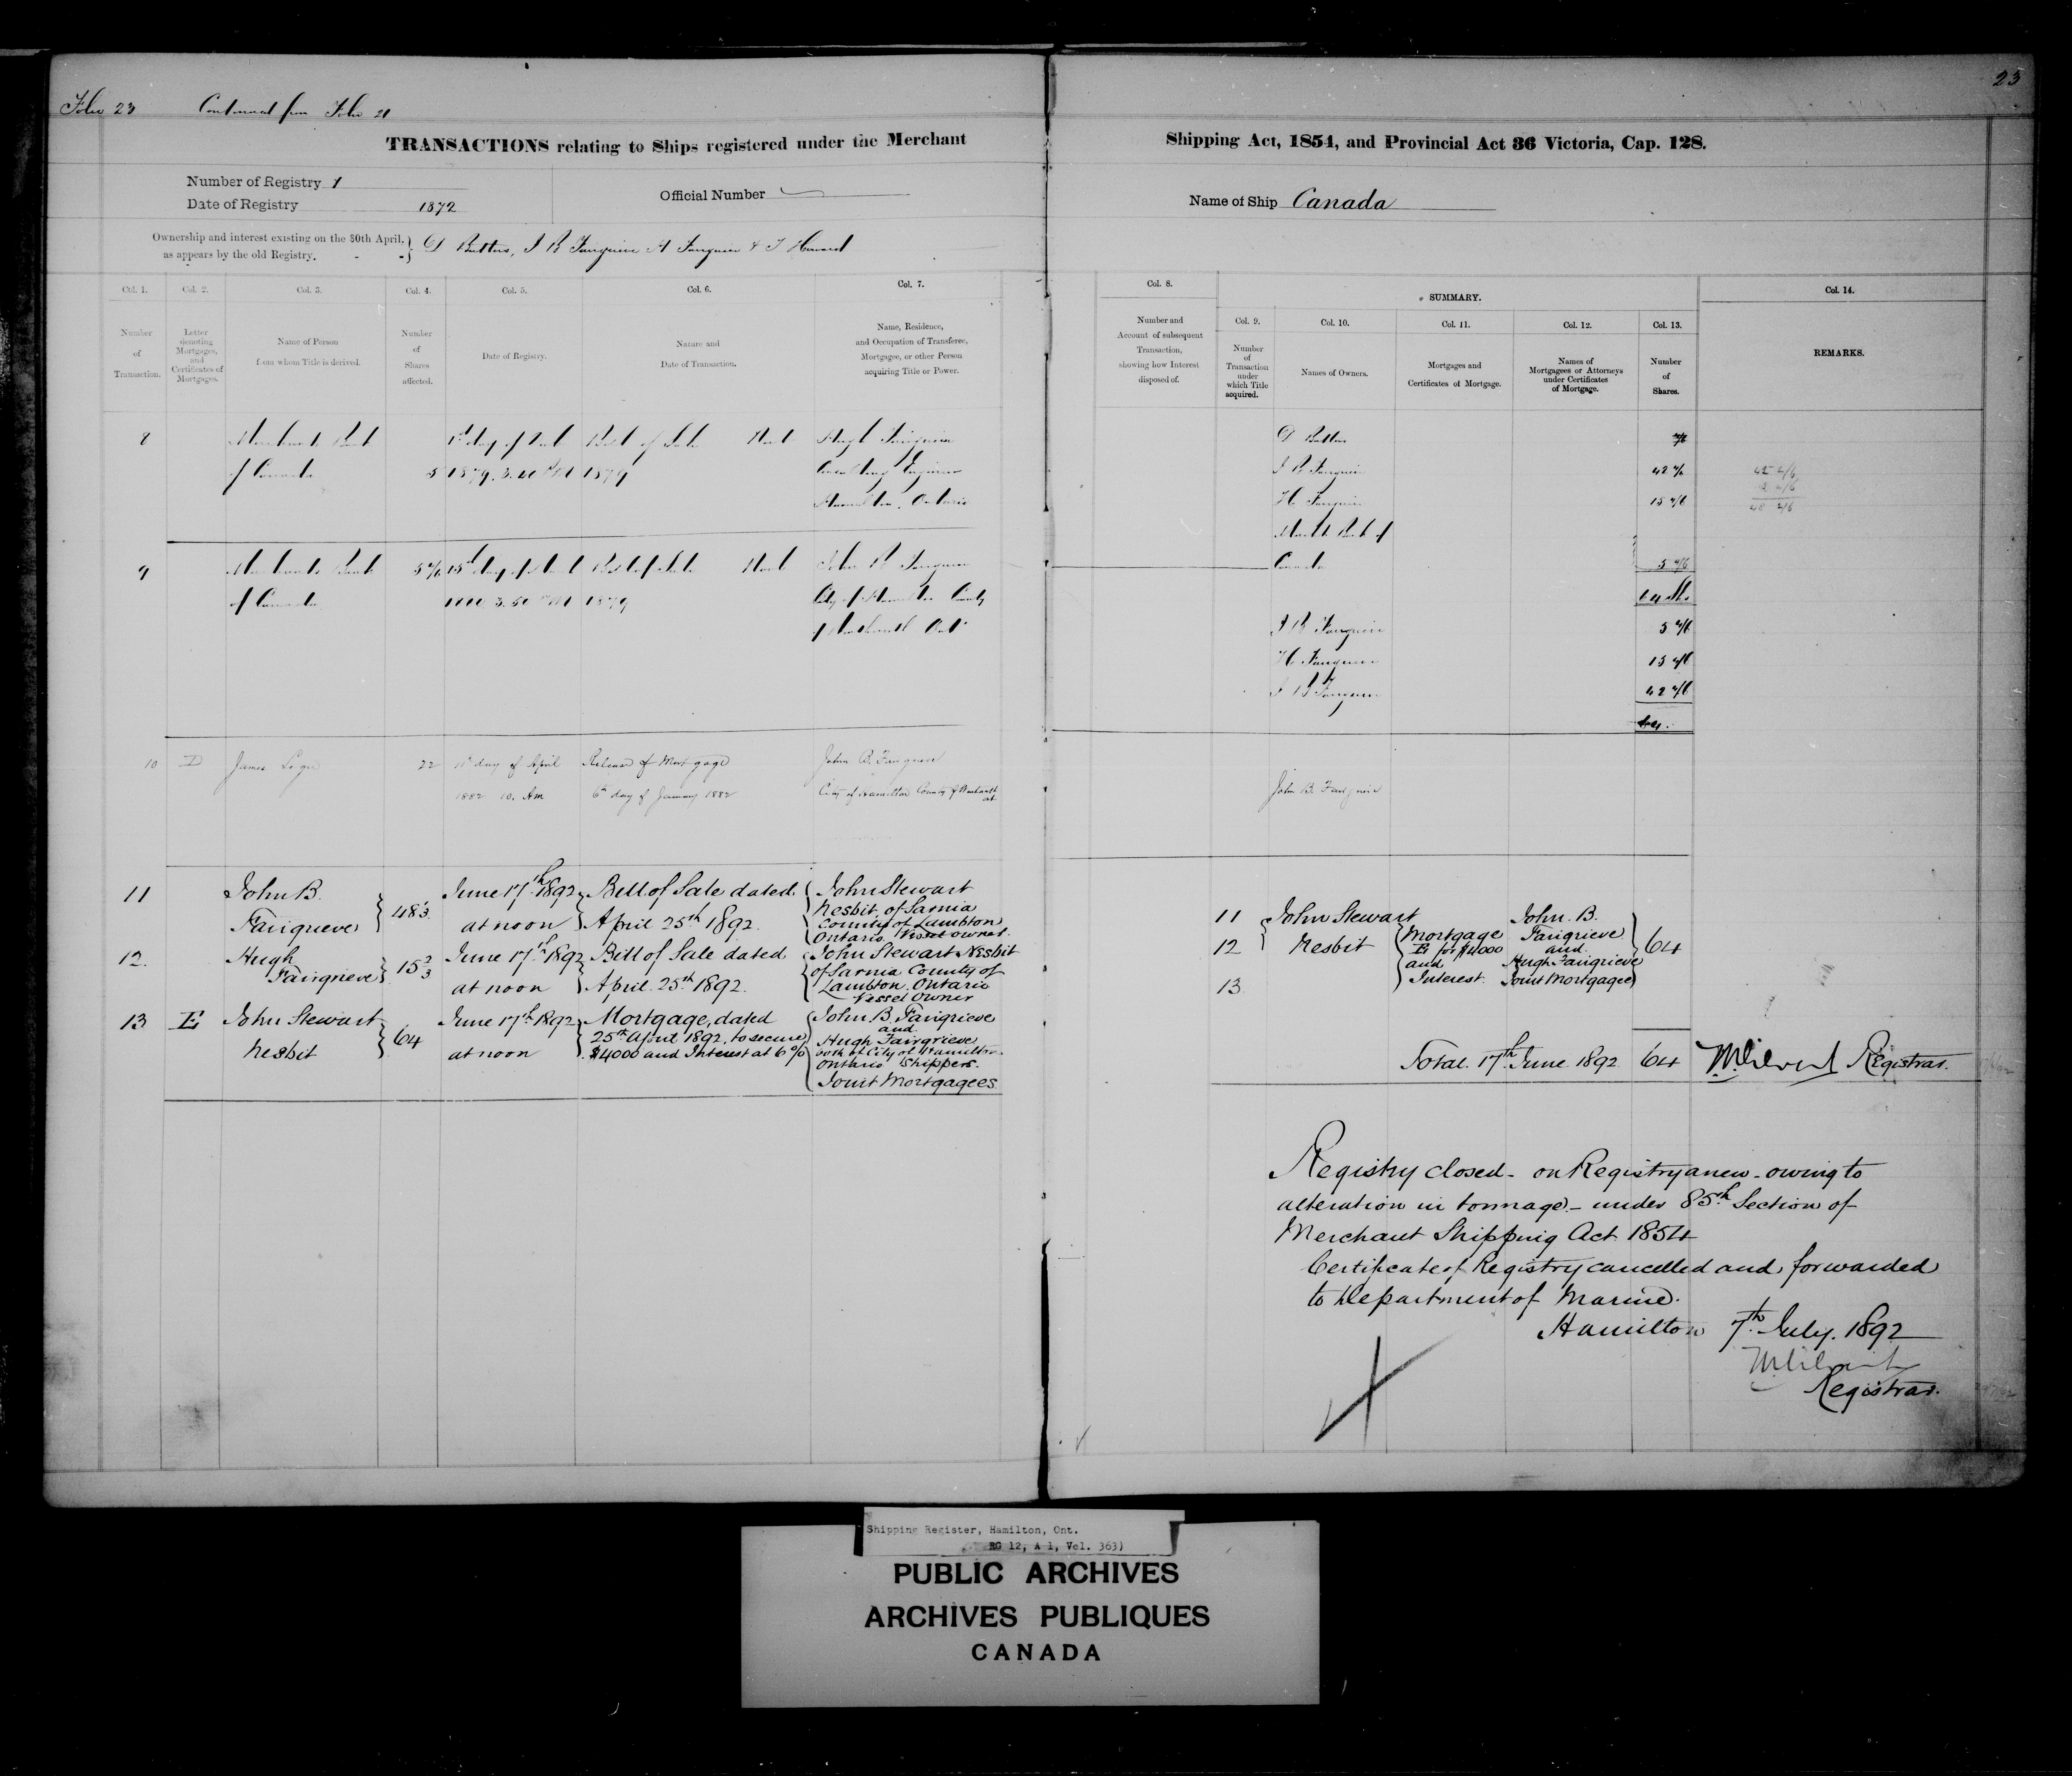 23
Folio 23 Continued from Folio 21
TRANSACTIONS relating to Ships registered under the Merchant Shipping Act, 1854, and Provincial Act 36 Victoria, Cap. 128.
Number of Registry 1
Date of Registry 1872
Official Number
Name of Ship Canada
Ownership and interest existing on the 30th April,
as appears by the old Registry.
D Butters, J B Fairgrieve H Fairgrieve & T Howard
Col. 1.
Number
of
Transaction.
Col. 2.
Letter
denoting
Mortgages,
and
Certificates of
Mortgages.
Col. 3.
Name of Person
from whom Title is derived.
Col. 4.
Number
of
Shares
affected.
Col. 5.
Date of Registry.
Col. 6.
Nature and
Date of Transaction.
Col. 7.
Name, Residence,
and Occupation of Transferee,
Mortgagee, or other Person
acquiring Title or Power.
Col. 8.
Number and
Account of subsequent
Transaction,
showing how Interest
disposed of.
SUMMARY.
Col. 9.
Number
of
Transaction
under
which Title
acquired.
Col. 10.
Names of Owners.
Col. 11.
Mortgages and
Certificates of Mortgage.
Col. 12.
Names of
Mortgagees or Attorneys
under Certificates
of Mortgage.
Col. 13.
Number
of
Shares.
Col. 14.
REMARKS.
8 Merchants Bank Bill of Sale Hugh Fairgrieve
of Canada 5 1879 1879 Engineer
Hamilton, Ontario
D Butters
J B Fairgrieve 42 4/6
H Fairgrieve 15 4/6
Canada 5 4/6
9 Merchants Bank 5 4/6 Bill of Sale John B Fairgrieve
of Canada 3.50 PM 1879 City of Hamilton County
of Wentworth Ont
J B Fairgrieve 5 4/6
H Fairgrieve 15 4/6
J B Fairgrieve 42 4/6
64
10 D James 22 day of April Release of Mortgage John B. Fairgrieve
1882 10. Am 6th day of January 1882 City of Hamilton County of Wentworth
John B. Fairgrieve
11 John B. Fairgrieve 48 1/3
June 17th 1892
at noon
Bill of Sale dated
April 25th 1892.
John Stewart
Nesbit, of Sarnia
County of Lambton
Ontario Vessel owner.
12. Hugh Fairgrieve 15 2/3
June 17th 1892
at noon
Bill of Sale dated
April 25th 1892.
John Stewart Nesbit
of Sarnia County of
Lambton. Ontario
Vessel Owner
13 E John Stewart
Nesbit 64
June 17th 1892
at noon
Mortgage, dated
25th April 1892, to secure
$4000 and Interest at 6%
John B. Fairgrieve
and
Hugh Fairgrieve
both of City of Hamilton
Ontario Shippers.
Joint Mortgagees.
11
12
13
John Stewart
Nesbit
Mortgage
E for $4000
and
Interest.
John. B.
Fairgrieve
and
Hugh Fairgrieve
Joint Mortgagees
64
Total. 17th June 1892 64 Registrar.
Registry closed - on Registry anew - owing to
alteration in tonnage - under 85th Section of
Merchant Shipping Act 1854
Certificate of Registry cancelled and forwarded
to Department of Marine.
Hamilton 7th July. 1892
Registrar.
Shipping Register, Hamilton, Ont.
RG 12, A 1, Vol. 363)
PUBLIC ARCHIVES
ARCHIVES PUBLIQUES
CANADA